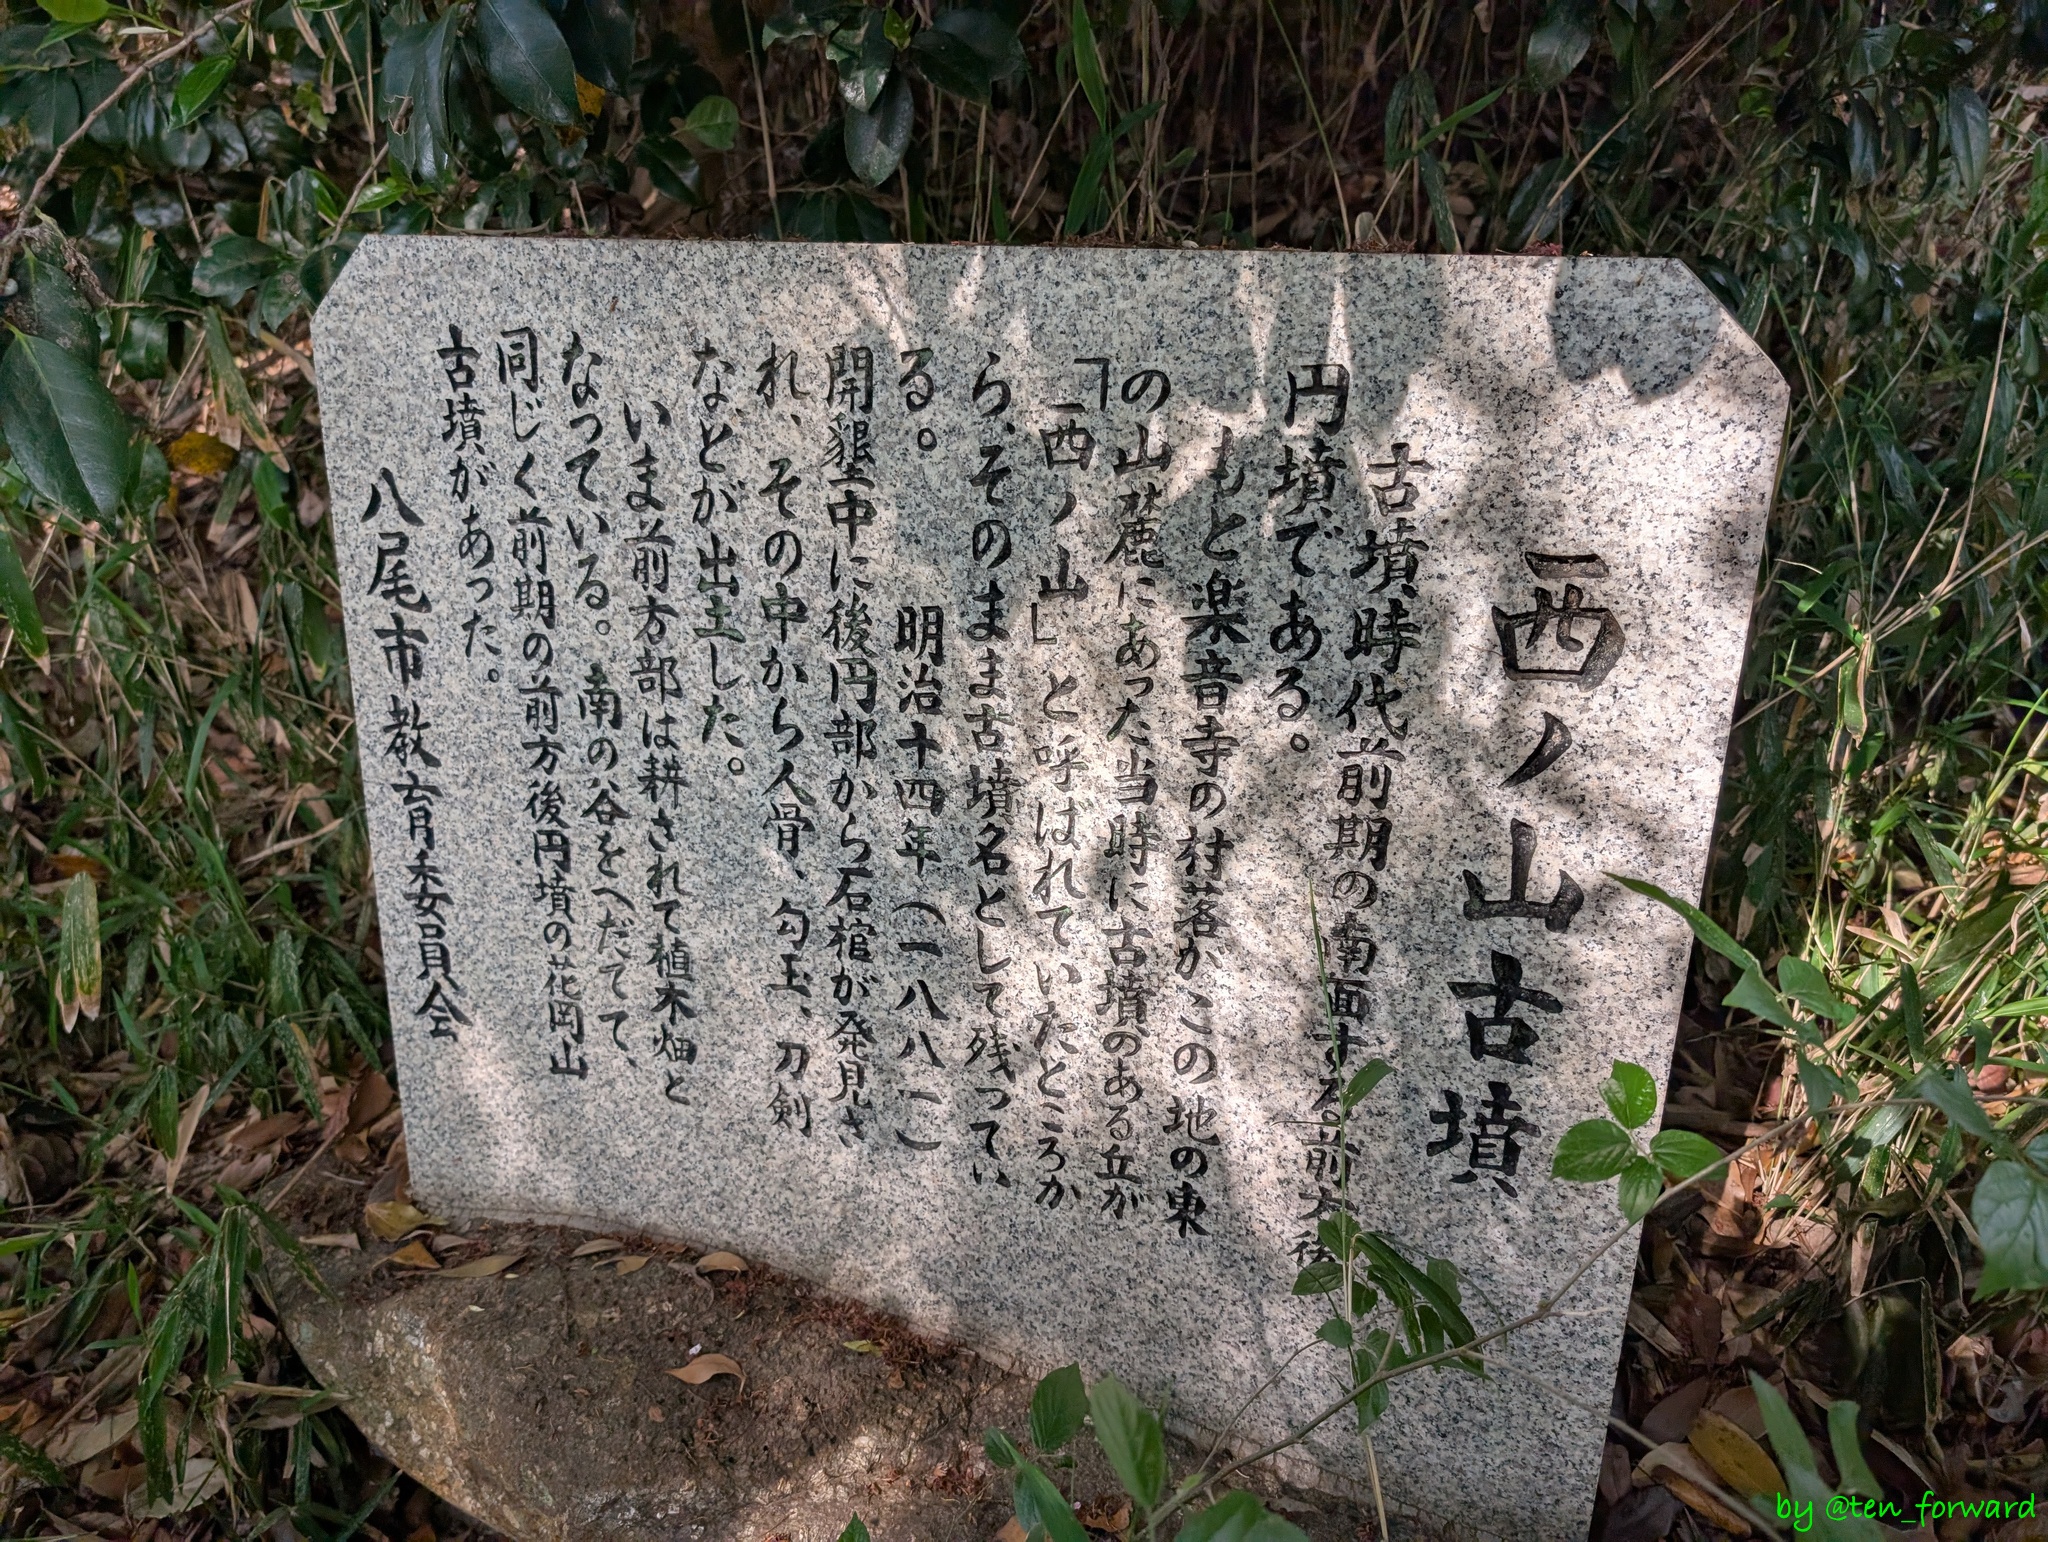 西ノ山古墳
古墳時代前期の南面する前方後
円墳である。
もと楽音寺の村落がこの地の東
の山麓にあった当時に古墳のある丘が
「西ノ山」と呼ばれていたところか
ら、そのまま古墳名として残ってい
る。　明治十四年（一八八一）
開墾中に後円部から石棺が発見さ
れ、その中から人骨、勾玉、刀剣
などが出土した。
いま前方部は耕されて植木畑と
なっている。南の谷をへだてて、
同じく前期の前方後円墳の花岡山
古墳があった。
八尾市教育委員会
by @ten_forward